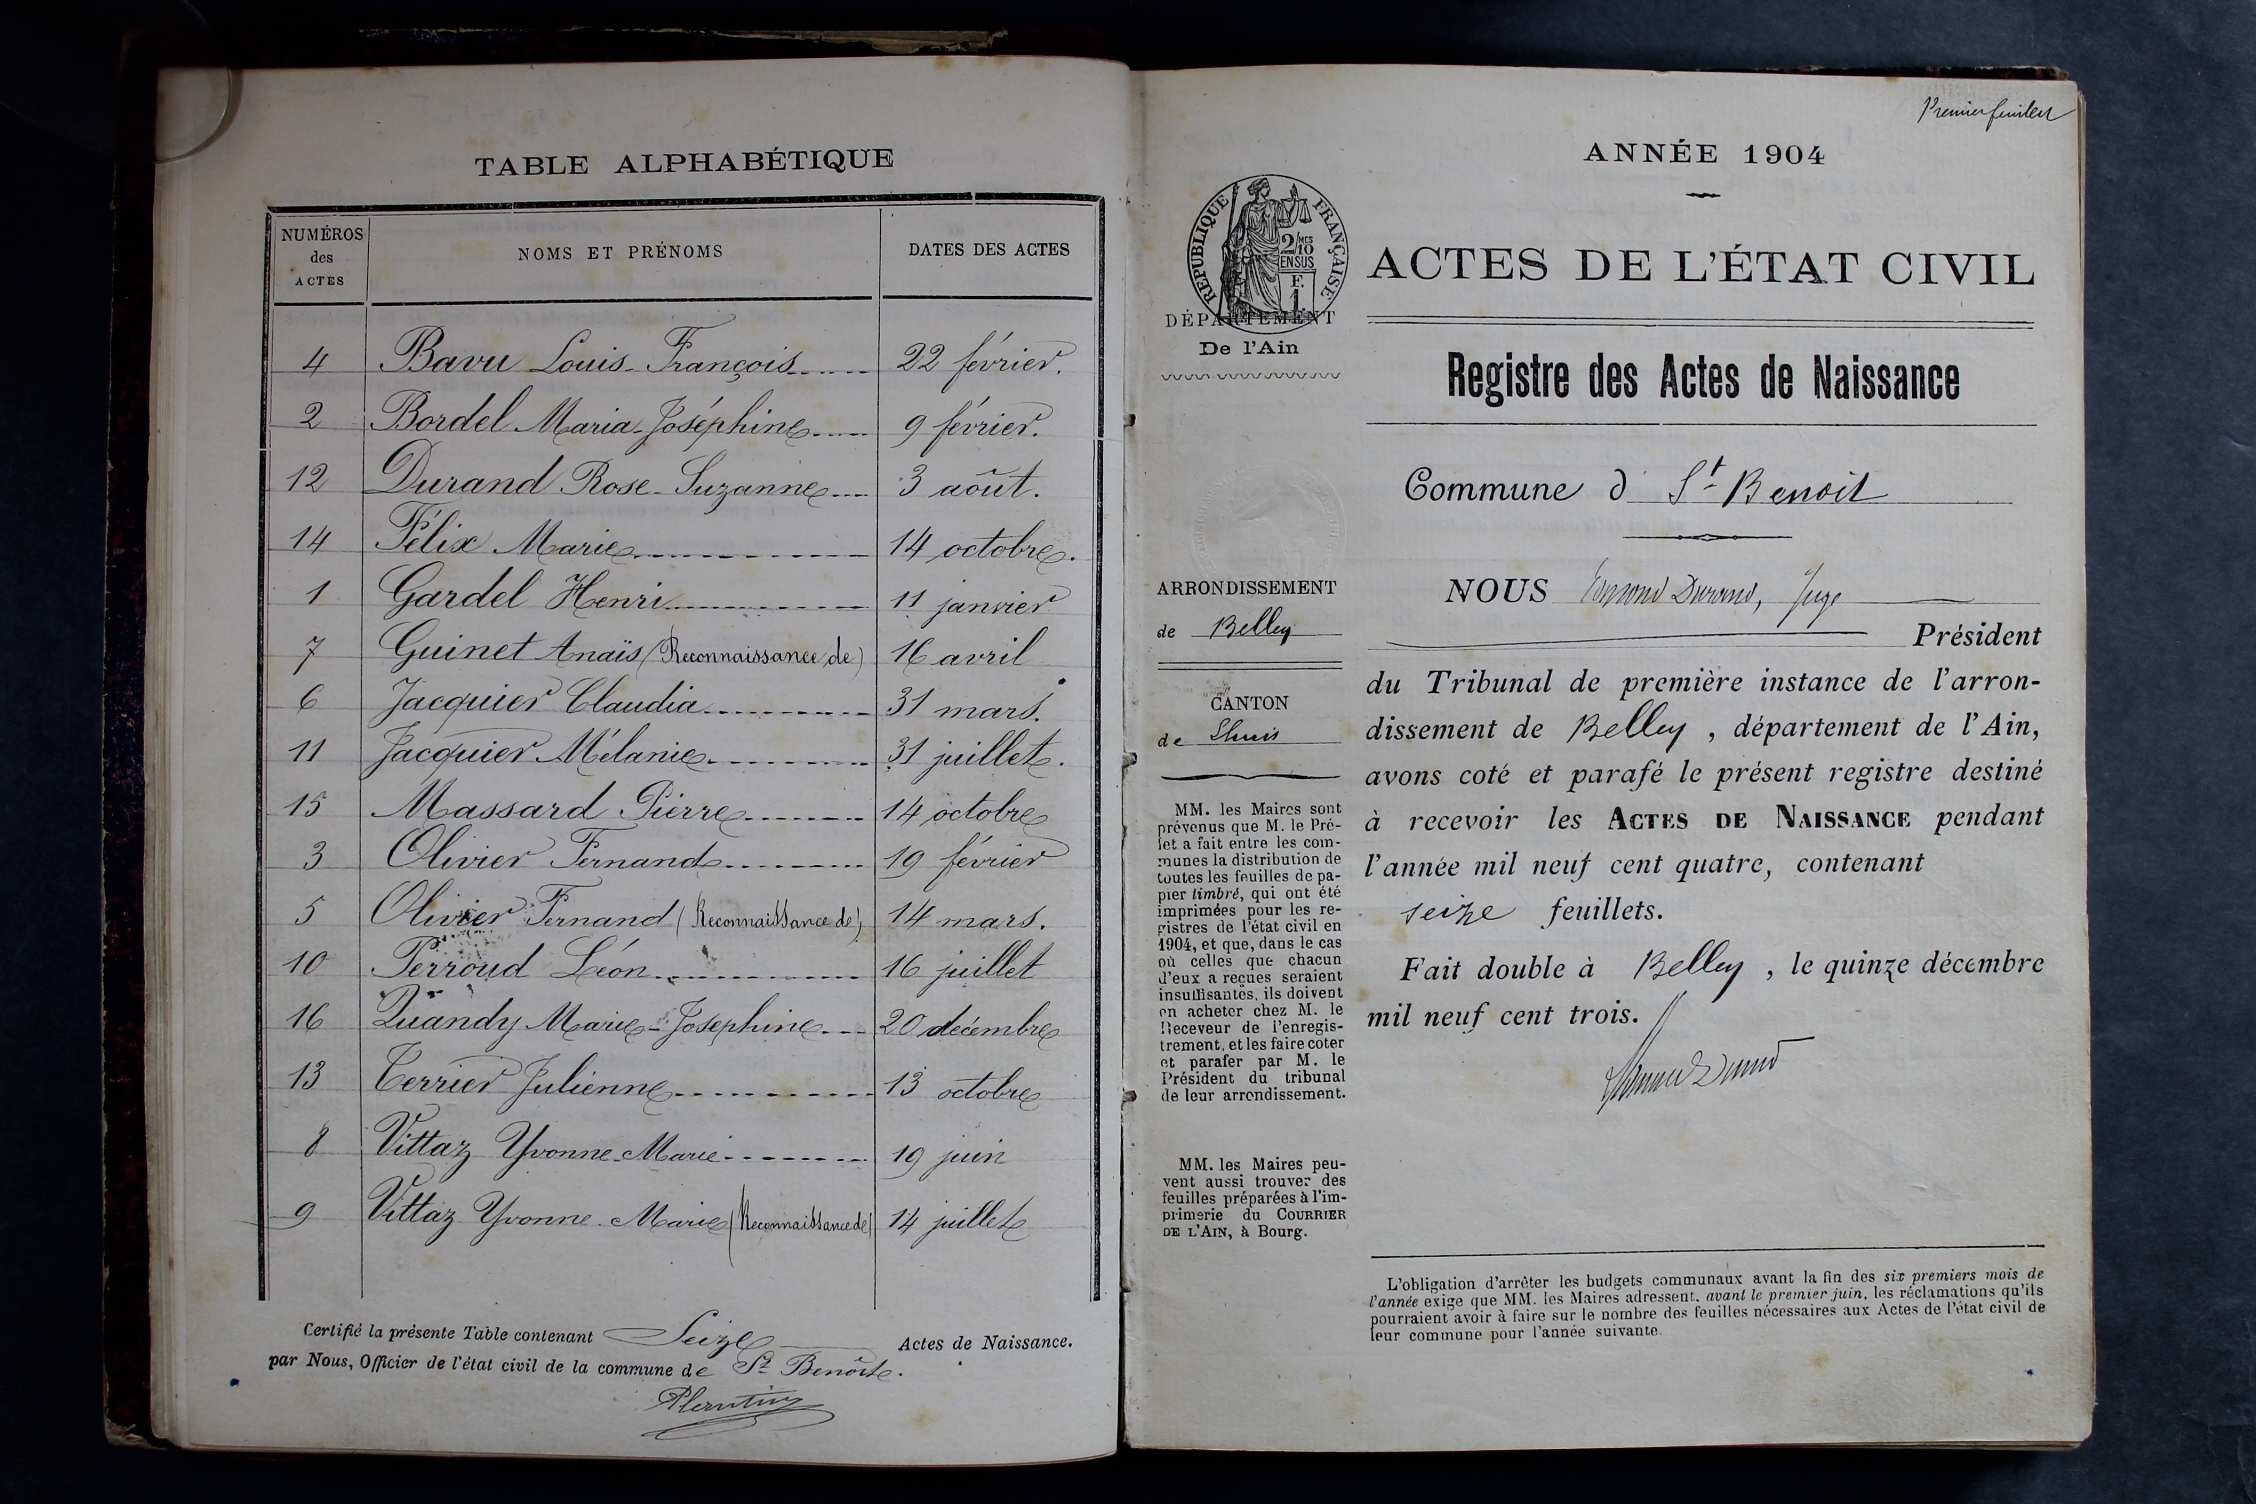 TABLE ALPHABÉTIQUE
NUMÉROS des ACTES NOMS ET PRÉNOMS DATES DES ACTES
4 Bavu Louis-François 22 février.
2 Bordel Maria-Joséphine 9 février.
12 Durand Rose-Suzanne 3 août.
14 Félix Marie 14 octobre.
1 Gardel Henri 11 janvier
7 Guinet Anaïs (Reconnaissance de) 16 avril
6 Jacquier Claudia 31 mars.
11 Jacquier Mélanie 31 juillet.
15 Massard Pierre 14 octobre
3 Olivier Fernand 19 février
5 Olivier Fernand (Reconnaissance de) 14 mars.
10 Perroud Léon 16 juillet
16 Quandy Marie-Josephine 20 décembre
13 Terrier Julienne 13 octobre
8 Vittaz Yvonne-Marie 19 juin
9 Vittaz Yvonne-Marie (Reconnaissance de) 14 juillet
Certifié la présente Table contenant Seize Actes de Naissance.
par Nous, Officier de l'état civil de la commune de St Benoit.
Premier feuillet
ANNÉE 1904
RÉPUBLIQUE FRANÇAISE
2/10 MES
EN SUS
F.
1
DÉPARTEMENT
De l'Ain
ARRONDISSEMENT
de Belley
CANTON
de Lhuis
MM. les Maires sont
prévenus que M. le Pré-
fet a fait entre les com-
munes la distribution de
toutes les feuilles de pa-
pier timbré, qui ont été
imprimées pour les re-
gistres de l'état civil en
1904, et que, dans le cas
où celles que chacun
d'eux a reçues seraient
insuffisantes, ils doivent
en acheter chez M. le
Receveur de l'enregis-
trement, et les faire coter
et parafer par M. le
Président du tribunal
de leur arrondissement.
MM. les Maires peu-
vent aussi trouver des
feuilles préparées à l'im-
primerie du COURRIER
DE L'AIN, à Bourg.
ACTES DE L'ÉTAT CIVIL
Registre des Actes de Naissance
Commune d St Benoit
NOUS Edmond Durand, Juge
Président
du Tribunal de première instance de l'arron-
dissement de Belley, département de l'Ain,
avons coté et parafé le présent registre destiné
à recevoir les ACTES DE NAISSANCE pendant
l'année mil neuf cent quatre, contenant
seize feuillets.
Fait double à Belley, le quinze décembre
mil neuf cent trois.
L'obligation d'arrêter les budgets communaux avant la fin des six premiers mois de
l'année exige que MM. les Maires adressent, avant le premier juin, les réclamations qu'ils
pourraient avoir à faire sur le nombre des feuilles nécessaires aux Actes de l'état civil de
leur commune pour l'année suivante.